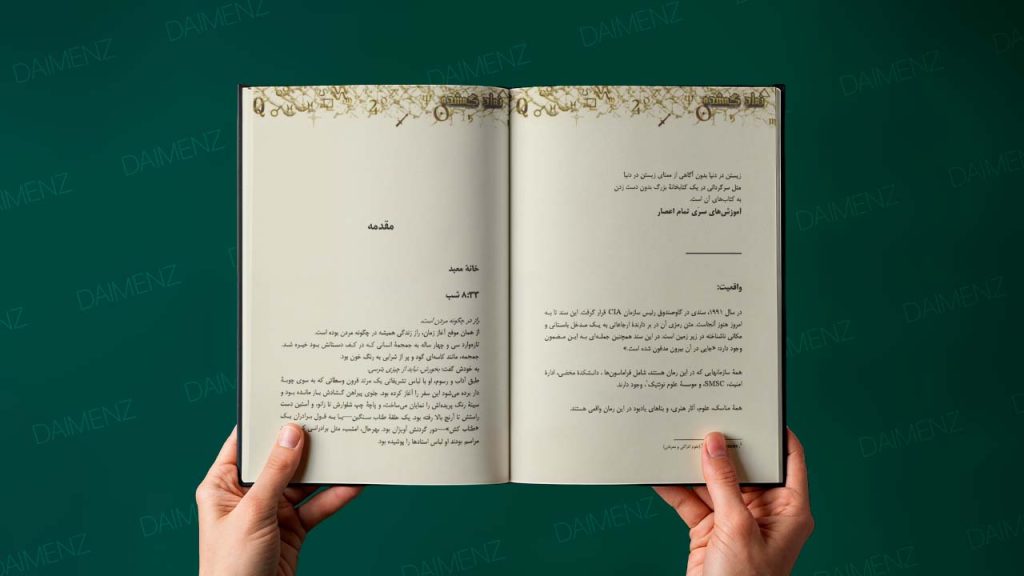 نماد گمشده
زیستن در دنیا بدون آگاهی از معنای زیستن در دنیا
مثل سرگردانی در یک کتابخانهٔ بزرگ بدون دست زدن
به کتاب‌های آن است.
آموزش‌های سری تمام اعصار
واقعیت:
در سال ۱۹۹۱، سندی در گاوصندوق رئیس سازمان CIA قرار گرفت. این سند تا به
امروز هنوز آنجاست. متن رمزی آن در بر دارندهٔ ارجاعاتی به یک مدخل باستانی و
مکانی ناشناخته در زیر زمین است. در این سند همچنین جمله‌ای به این مضمون
وجود دارد: «جایی در آن بیرون مدفون شده است.»
همهٔ سازمانهایی که در این رمان هستند، شامل فراماسون‌ها، دانشکدهٔ مخفی، ادارهٔ
امنیت، SMSC، و موسسهٔ علوم نوتتیک¹، وجود دارند.
همهٔ مناسک، علوم، آثار هنری، و بناهای یادبود در این رمان واقعی هستند.
(علوم ادراکی و معرفتی)
مقدمه
خانهٔ معبد
۸:۳۳ شب
راز در چگونه مردن است.
از همان موقع آغاز زمان، راز زندگی همیشه در چگونه مردن بوده است.
تازه‌وارد سی و چهار ساله به جمجمهٔ انسانی که در کف دستانش بود خیره شد.
جمجمه، مانند کاسه‌ای گود و پر از شرابی به رنگ خون بود.
به خودش گفت: بخورش. نباید از چیزی بترسی.
طبق آداب و رسوم، او با لباس تشریفاتی یک مرتد قرون وسطائی که به سوی چوبهٔ
دار برده می‌شود این سفر را آغاز کرده بود. جلوی پیراهن گشادش باز مانده بود و
سینهٔ رنگ پریده‌اش را نمایان می‌ساخت، و پاچهٔ چپ شلوارش تا زانو، و آستین دست
راستش تا آرنج بالا رفته بود. یک حلقهٔ طناب سنگین—یا به قول برادران یک
«طناب کش»—دور گردنش آویزان بود. بهرحال، امشب، مثل برادرانی که
مراسم بودند او لباس استادها را پوشیده بود.
DAIMENZ